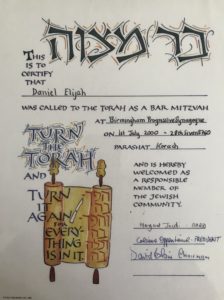 בר מצוה
THIS
IS TO
CERTIFY
THAT
Daniel Elijah
WAS CALLED TO THE TORAH AS A BAR MITZVAH
AT Birmingham Progressive Synagogue
ON 1st July 2000 - 28th Sivan 5760
PARASHAT Korach
TURN
THE
TORAH
AND
TURN
IT
AGAIN
FOR
EVERY-
THING
IS IN IT.
AND IS HEREBY
WELCOMED AS
A RESPONSIBLE
MEMBER OF
THE JEWISH
COMMUNITY.
PRESIDENT
CHAIRMAN